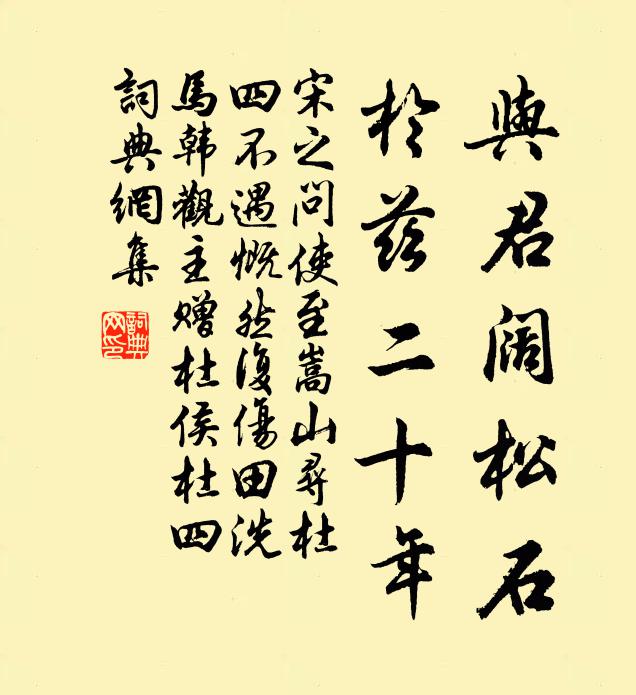 與君闊松石
於茲二十年
宋之問使至嵩山尋杜
四不遇慨然復傷田洗
馬韓觀主贈杜侯杜四
詞典網集
詞典網印